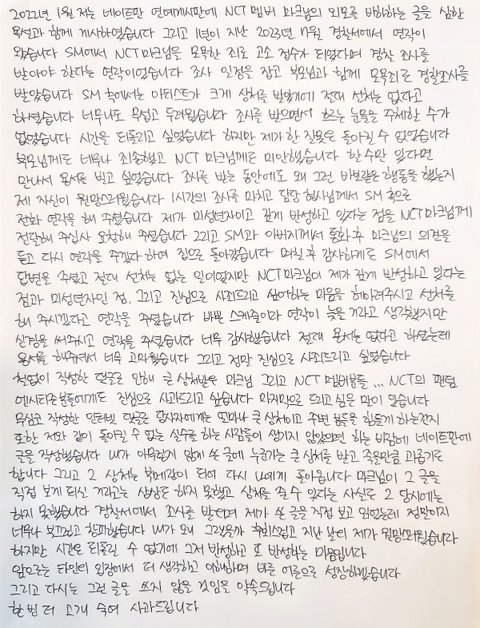 2022년 1월 저는 네이트판 연예게시판에 NCT 멤버 마크님의 외모를 비하하는 글을 심한
욕설과 함께 게시하였습니다 그리고 1년이 지난 2023년 11월 경찰서에서 연락이
왔습니다 SM에서 NCT 마크님을 모욕한 죄로 고소 접수가 되었다며 경찰 조사를
받아야 한다는 연락이었습니다 조사 일정을 잡고 부모님과 함께 모욕죄로 경찰조사를
받았습니다 SM 측에서는 아티스트가 크게 상처를 받았기에 절대 선처는 없다고
하였습니다 너무나도 무섭고 두려웠습니다 조사를 받으면서 흐르는 눈물을 주체할 수가
없었습니다 시간을 되돌리고 싶었습니다 하지만 제가 한 잘못은 돌아킬 수 없었습니다
부모님께도 너무나 죄송했고 NCT 마크님께도 미안했습니다 할 수만 있다면
만나서 용서를 빌고 싶었습니다 조사를 받는 동안에도 왜 그런 바보같은 행동을 했는지
제 자신이 원망스러웠습니다 1시간의 조사를 마치고 담당 형사님께서 SM 측으로
전화 연락을 해 주셨습니다 제가 미성년자이고 깊게 반성하고 있다는 점을 NCT 마크님께
전달해 주십사 요청해 주셨습니다 그리고 SM과 아버지께서 통화 후 마크님의 의견을
듣고 다시 연락을 주겠다 하여 집으로 돌아갔습니다 며칠 후 감사하게도 SM에서
답변을 주셨고 절대 선처는 없는 일이었지만 NCT 마크님이 제가 깊게 반성하고 있다는
점과 미성년자인 점, 그리고 진심으로 사죄드리고 싶어하는 마음을 헤아려주시고 선처를
해 주시겠다고 연락을 주셨습니다 바쁜 스케줄이라 연락이 늦을 거라고 생각했지만
신경을 써주시고 연락을 주셨습니다 너무 감사했습니다 절대 용서는 없다고 하셨는데
용서를 해주셔서 너무 고마웠습니다 그리고 정말 진심으로 사죄드리고 싶었습니다
철없이 작성한 댓글로 인해 큰 상처받은 마크님 그리고 NCT 멤버분들 ... NCT의 팬덤
엔시티즌분들에게도 진심으로 사과드리고 싶습니다 마지막으로 드리고 싶은 말이 있습니다
무심코 작성한 인터넷 댓글은 당사자에게는 얼마나 큰 상처이고 주변 분들을 힘들게 하는건지
또한 저와 같이 돌아킬 수 없는 실수를 하는 사람들이 생기지 않았으면 하는 바람에 네이트판에
글을 작성했습니다 내가 아무렇지 않게 쓴 글에 누군가는 큰 상처를 받고 죽을만큼 괴롭기도
합니다 그리고 그 상처는 부메랑이 되어 다시 나에게 돌아옵니다 마크님이 그 글을
직접 보게 되신 거라고는 상상도 하지 못했고 상처를 줄 수 있다는 사실도 그 당시에는
하지 못했습니다 경찰서에서 조사를 받으며 제가 쓴 글을 직접 보고 읽었는데 정말이지
너무나 부끄럽고 창피했습니다 내가 왜 그랬을까 후회스럽고 지난 날의 제가 원망스러웠습니다
하지만 시간은 되돌릴 수 없기에 그저 반성하고 또 반성하는 마음입니다
앞으로는 타인의 입장에서 더 생각하고 이해하며 바른 어른으로 성장하겠습니다
그리고 다시는 그런 글을 쓰지 않을 것임을 약속드립니다
한번 더 고개 숙여 사과드립니다